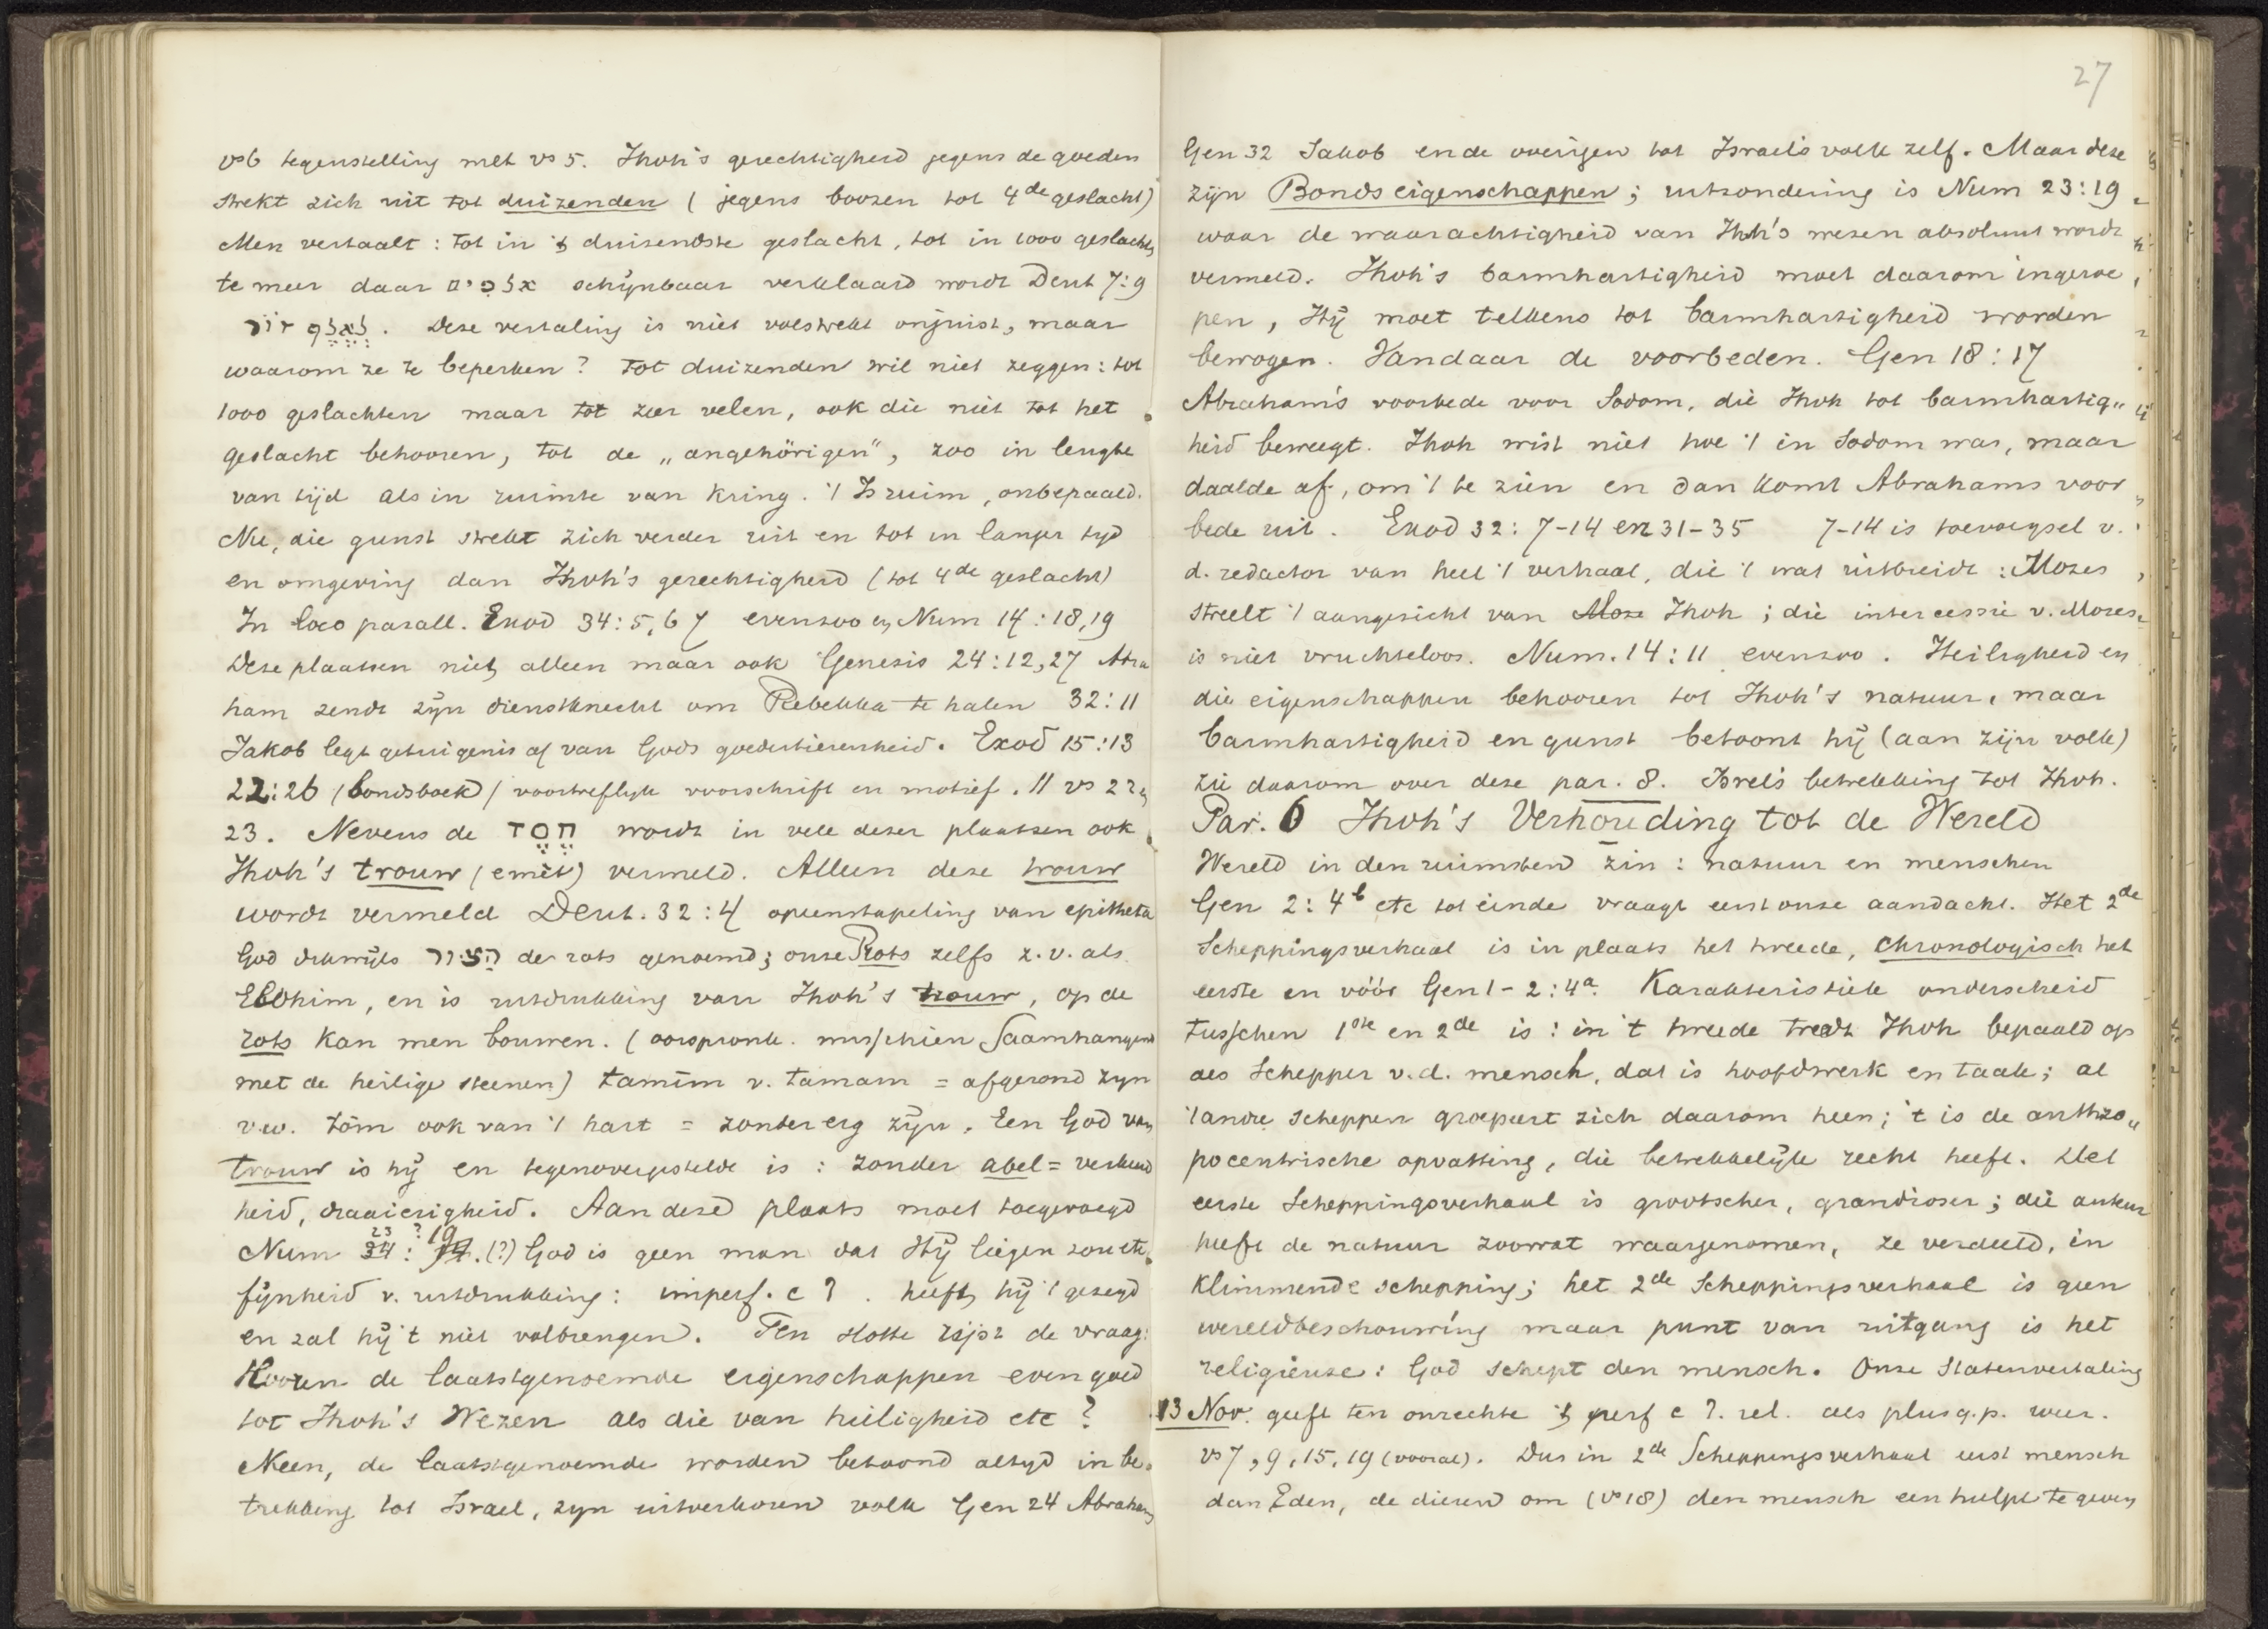 vs 6 tegenstelling met vs 5. Jhvh's gerechtigheid jegens de goeden
strekt zich uit tot duizenden (jegens boozen tot 4de geslacht)
Men vertaalt: tot in 't duizendste geslacht, tot in 1000 geslachten
te meer daar אלפים schijnbaar verklaard wordt Deut 7:9
לאלף דור. Deze vertaling is niet volstrekt onjuist, maar
waarom ze te beperken? Tot duizenden wil niet zeggen: tot
1000 geslachten maar tot zeer velen, ook die niet tot het
geslacht behooren, tot de „angehörigen", zoo in lengte
van tijd als in ruimte van kring. 't Is ruim, onbepaald.
Nu, die gunst strekt zich verder uit en tot in langer tijd
en omgeving dan Jhvh's gerechtigheid (tot 4de geslacht)
In loco parall. Exod 34:5,6 7 evenzoo en Num 14:18,19
Deze plaatsen niet alleen maar ook Genesis 24:12,27 Abra
ham zendt zijn dienstknecht om Rebekka te halen 32:11
Jakob legt getuigenis af van Gods goedertierenheid. Exod 15:13
22:26 (bondsboek) voortreflijk voorschrift en motief. // vs 22,
23. Nevens de חסד wordt in vele dezer plaatsen ook
Jhvh's trouw (emèt) vermeld. Alleen deze trouw
wordt vermeld Deut. 32:4 opeenstapeling van epitheta
God dikwijls הצור de rots genoemd; onze Rots zelfs z.v. als
Elohim, en is uitdrukking van Jhvh's trouw, op de
rots kan men bouwen. (oorspronk. misschien saamhangend
met de heilige steenen) tamîm v. tamam = afgerond zijn
v.w. tôm ook van 't hart = zonder erg zijn. Een God van
trouw is hij en tegenovergestelde is: zonder abel = verkeerd
heid, draaierigheid. Aan deze plaats moet toegevoegd
Num 23 34: ? 19 14. (?) God is geen man dat Hij liegen zou etc.
fijnheid v. uitdrukking: imperf. c ו. heeft hij 't gezegd
en zal hij 't niet volbrengen. Ten slotte rijst de vraag:
Hooren de laatstgenoemde eigenschappen even goed
tot Jhvh's Wezen als die van heiligheid etc?
Neen, de laatstgenoemde worden betoond altijd in be„
trekking tot Israel, zijn uitverkoren volk Gen 24 Abraham
27
Gen 32 Jakob en de overigen tot Israels volk zelf. Maar deze
zijn Bondseigenschappen; uitzondering is Num 23:19
waar de waarachtigheid van Jhvh's wezen absoluut wordt
vermeld. Jhvh's barmhartigheid moet daarom ingeroe
pen, Hij moet telkens tot barmhartigheid worden
bewogen. Vandaar de voorbeden. Gen 18:17
Abraham's voorbede voor Sodom, die Jhvh tot barmhartig„
heid beweegt. Jhvh wist niet hoe 't in Sodom was, maar
daalde af, om 't te zien en dan komt Abrahams voor
bede uit. Exod 32:7-14 en 31-35 7-14 is toevoegsel v.
d. redactor van heel 't verhaal, die 't wat uitbreidt: Mozes
streelt 't aangezicht van Moze Jhvh; die intercessie v. Mozes
is niet vruchteloos. Num. 14:11 evenzoo. Heiligheid en
die eigenschappen behooren tot Jhvh's natuur, maar
barmhartigheid en gunst betoont hij (aan zijn volk)
zie daarom over deze par. 8. Isrels betrekking tot Jhvh.
Par. 6 Jhvh's Verhouding tot de Wereld
Wereld in den ruimsten zin: natuur en menschen
Gen 2:4b etc tot einde vraagt eerst onze aandacht. Het 2de
Scheppingsverhaal is in plaats het tweede, chronologisch het
eerste en vóór Gen 1-2:4a. Karakteristiek onderscheid
tusschen 1ste en 2de is: in 't tweede treedt Jhvh bepaald op
als Schepper v.d. mensch, dat is hoofdwerk en taak; al
't andre scheppen groepeert zich daarom heen; 't is de anthro„
pocentrische opvatting, die betrekkelijk recht heeft. Het
eerste Scheppingsverhaal is grootscher, grandioser; die auteur
heeft de natuur zoowat waargenomen, ze verdeeld, in
klimmende schepping; het 2de Scheppingsverhaal is geen
wereldbeschouwing maar punt van uitgang is het
religieuse: God schept den mensch. Onze Statenvertaling
13 Nov. geeft ten onrechte 't perf c ו. rel. als plusq.p. weer.
vs 7, 9, 15, 19 (vooral). Dus in 2de Scheppingsverhaal eerst mensch
dan Eden, de dieren om (vs 18) den mensch een hulpe te geven